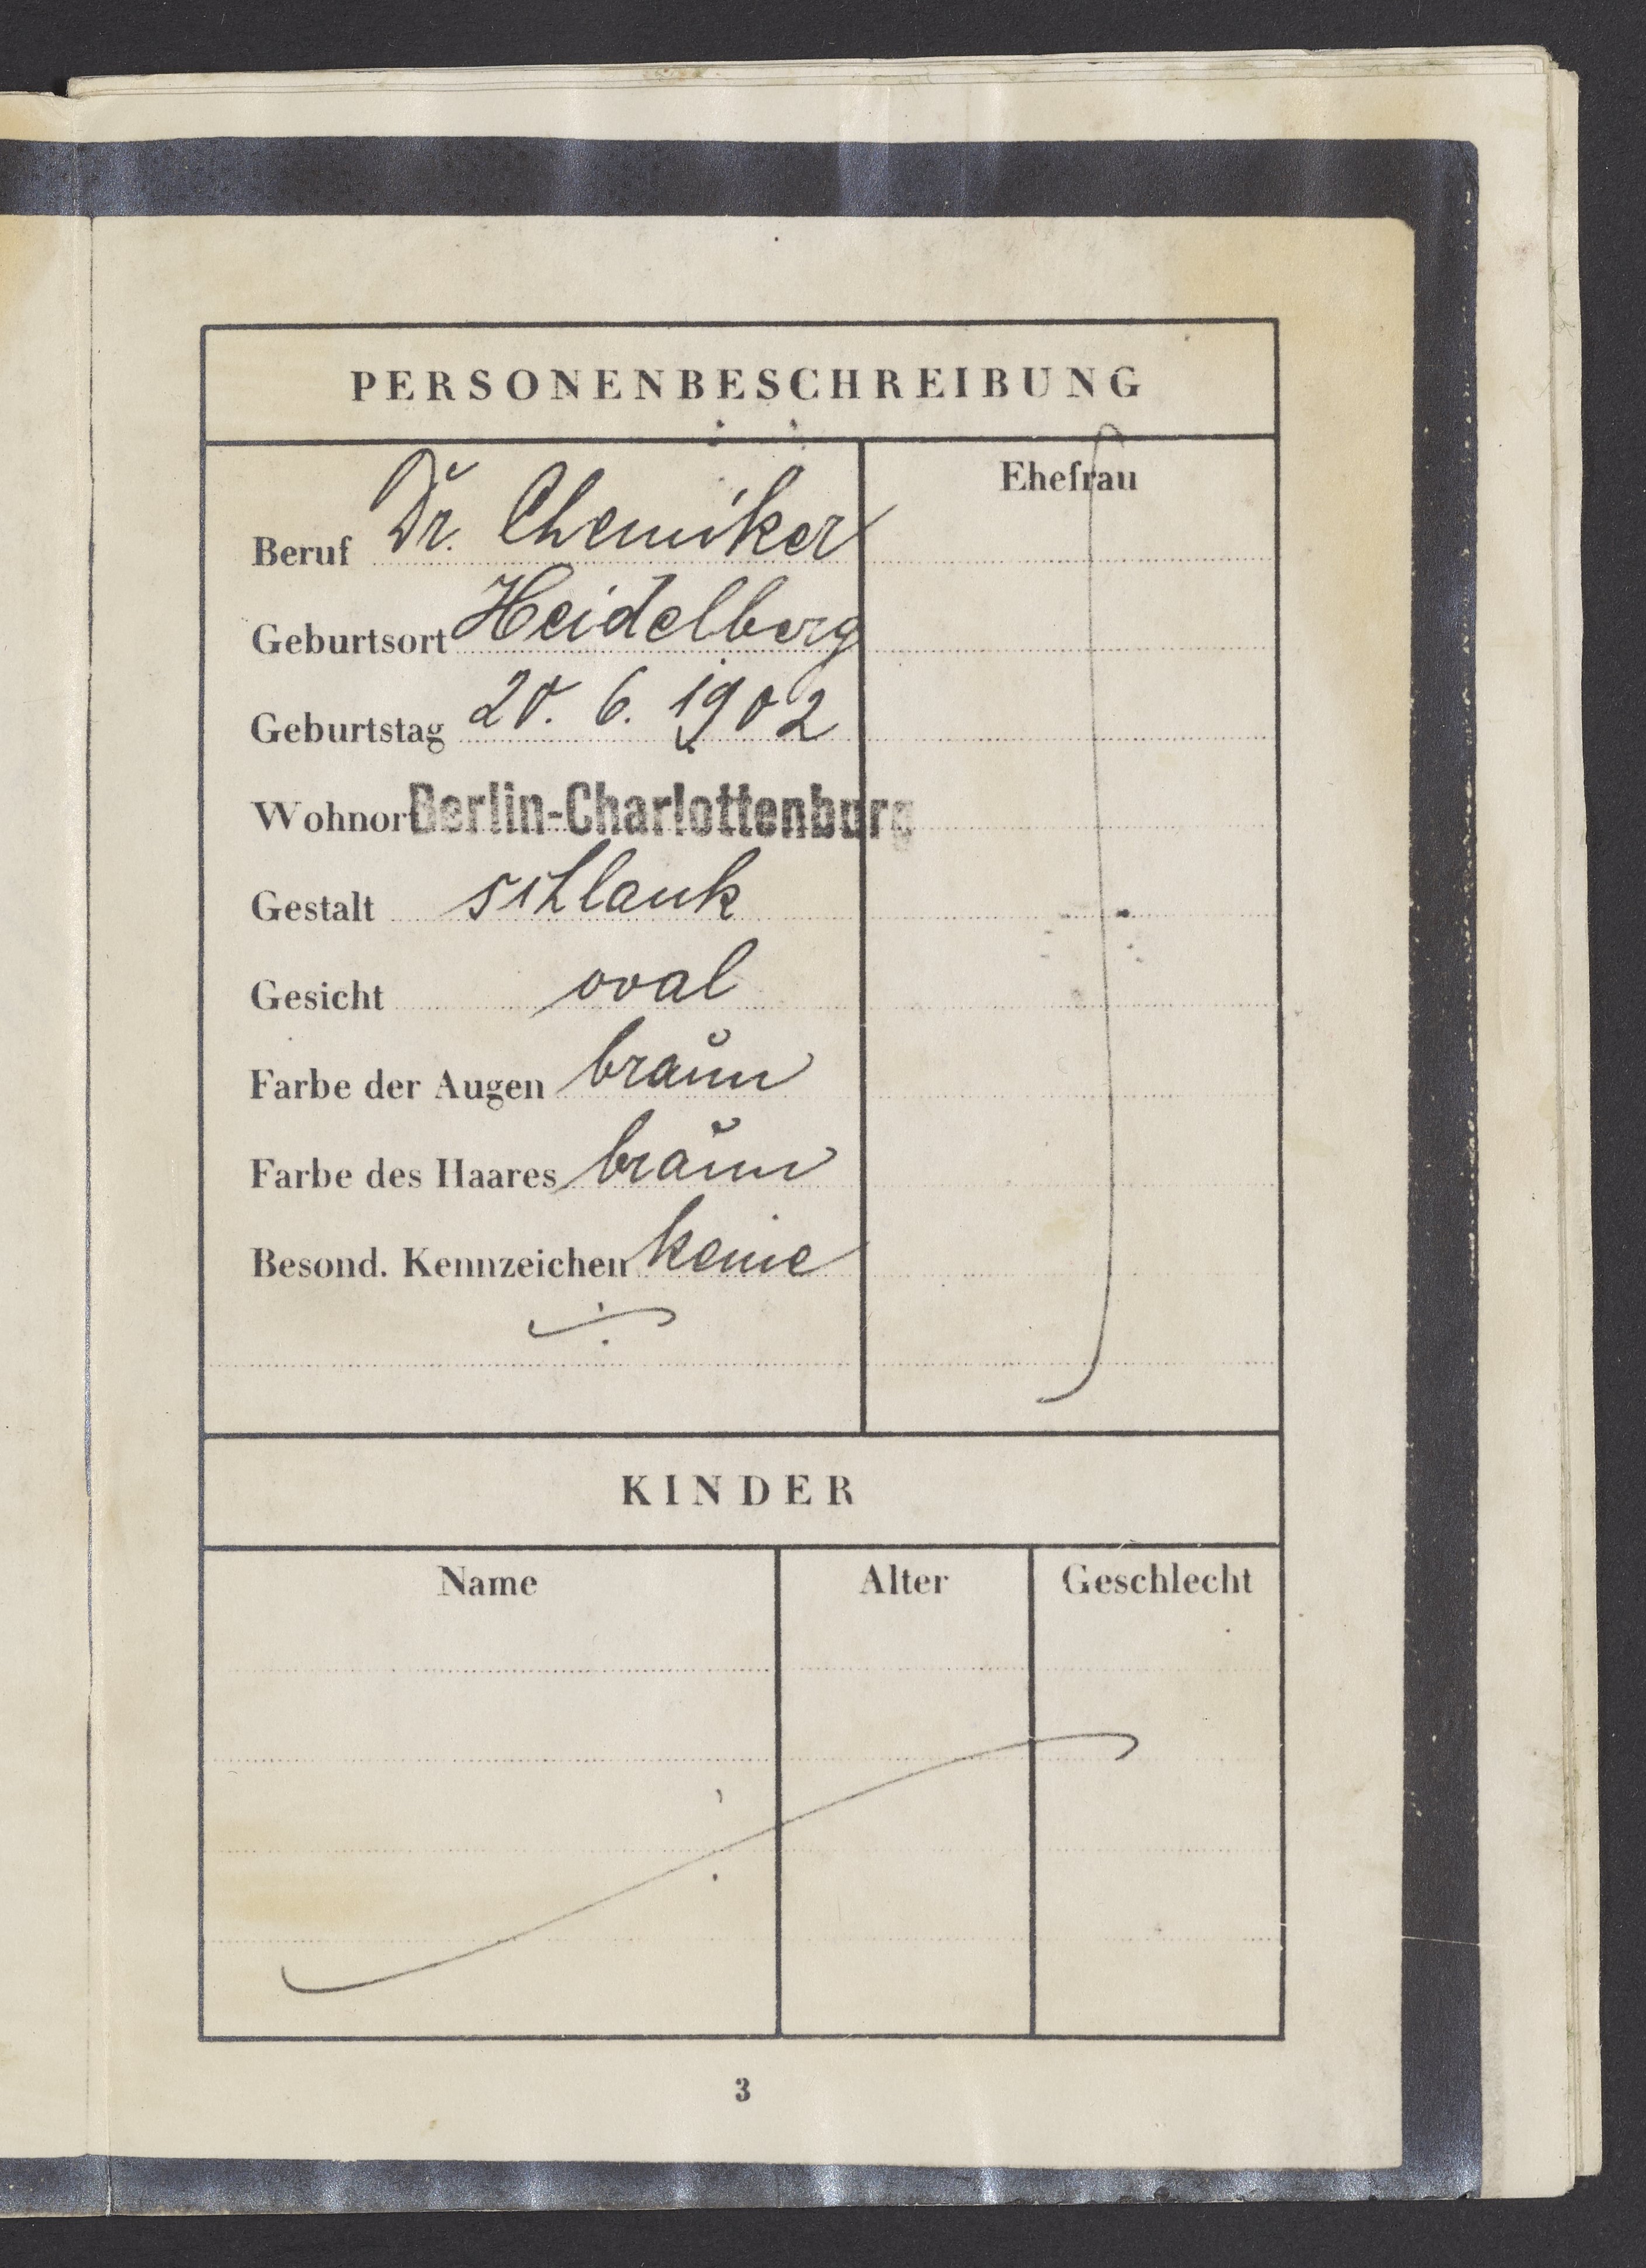 PERSONENBESCHREIBUNG
Ehefrau
Beruf Dr. Chemiker
Geburtsort Heidelberg
Geburtstag 20. 6. 1902
Wohnort Berlin-Charlottenburg
Gestalt schlank
Gesicht oval
Farbe der Augen braun
Farbe des Haares braun
Besond. Kennzeichen keine
KINDER
Name Alter Geschlecht
3